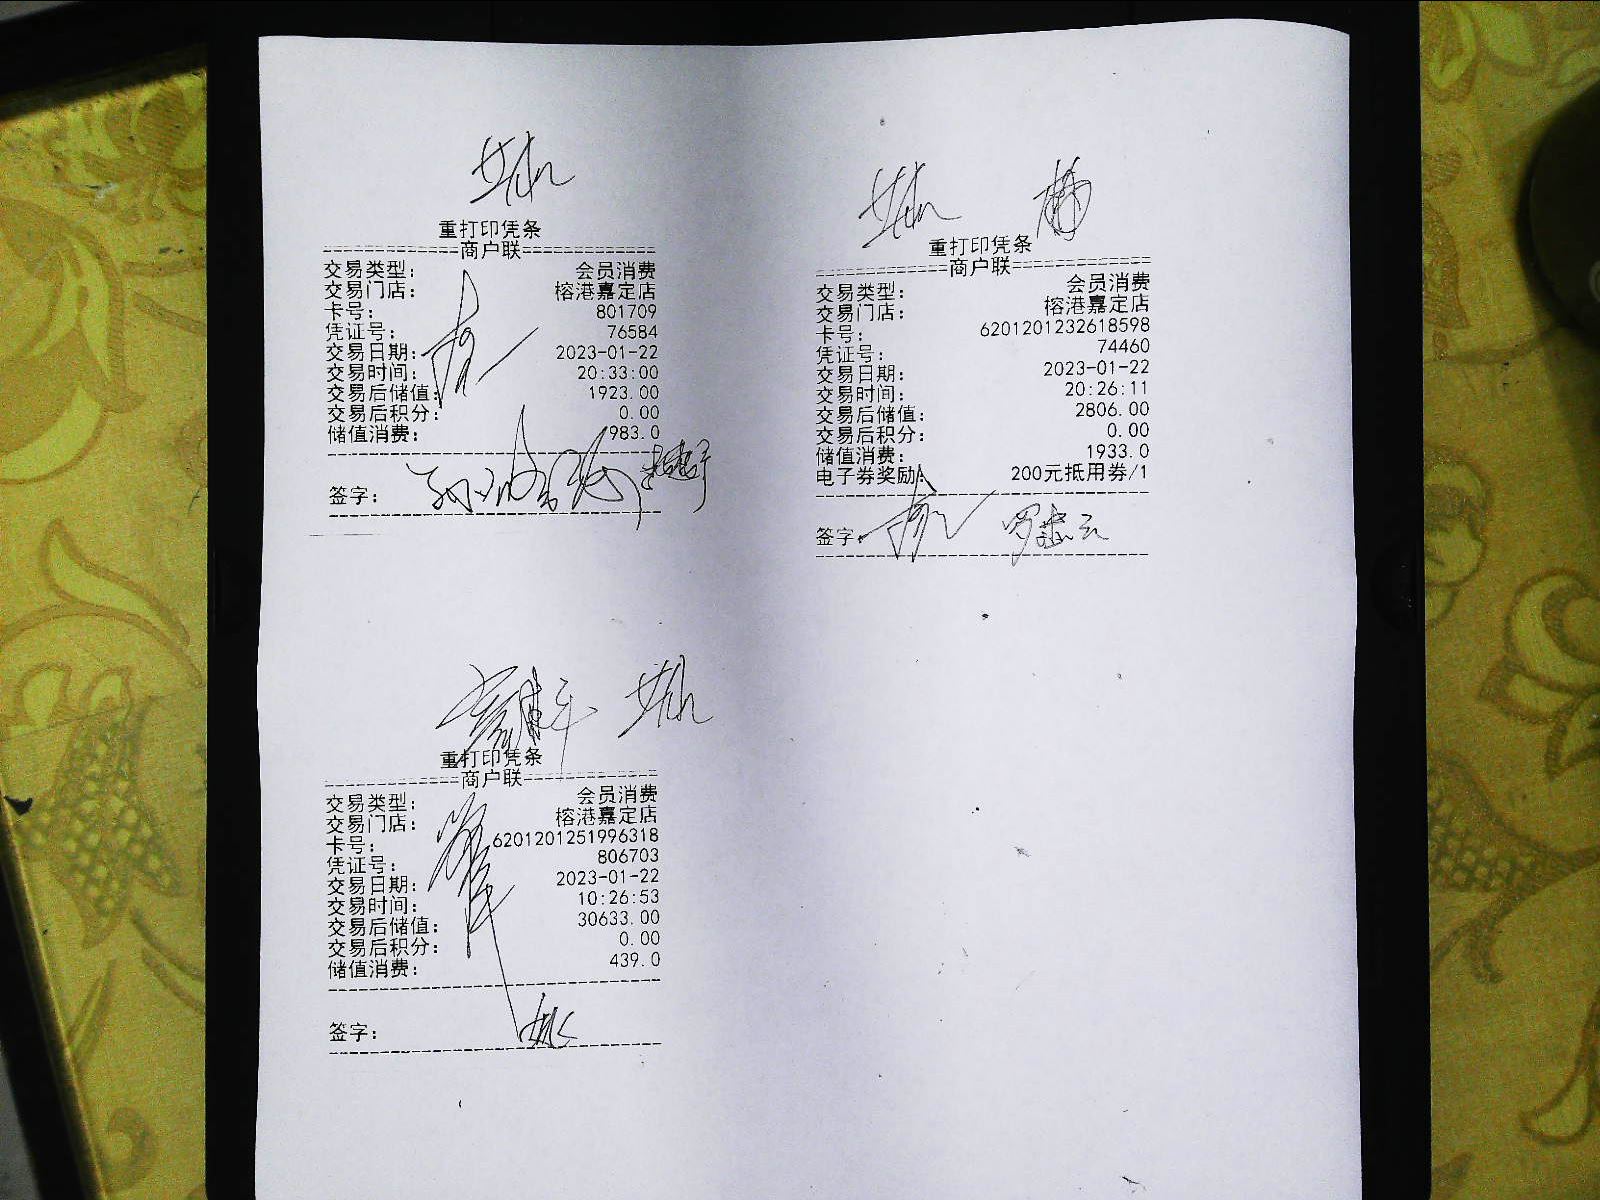 重打印凭条
商户联
交易类型： 会员消费
交易门店： 榕港嘉定店
卡号： 801709
凭证号： 76584
交易日期： 2023-01-22
交易时间： 20:33:00
交易后储值： 1923.00
交易后积分： 0.00
储值消费： 983.0
签字：
重打印凭条
商户联
交易类型： 会员消费
交易门店： 榕港嘉定店
卡号： 6201201232618598
凭证号： 74460
交易日期： 2023-01-22
交易时间： 20:26:11
交易后储值： 2806.00
交易后积分： 0.00
储值消费： 1933.0
电子券奖励： 200元抵用券/1
签字：
重打印凭条
商户联
交易类型： 会员消费
交易门店： 榕港嘉定店
卡号： 6201201251996318
凭证号： 806703
交易日期： 2023-01-22
交易时间： 10:26:53
交易后储值： 30633.00
交易后积分： 0.00
储值消费： 439.0
签字：